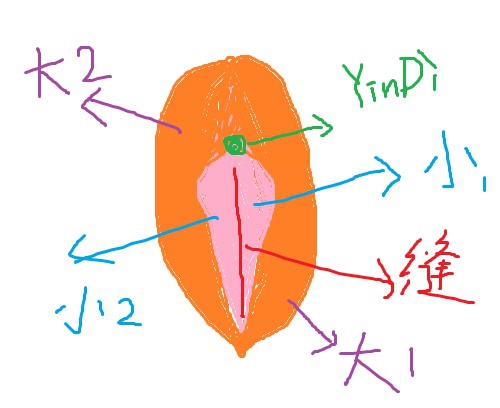 大2
YinDi
小1
缝
小2
大1